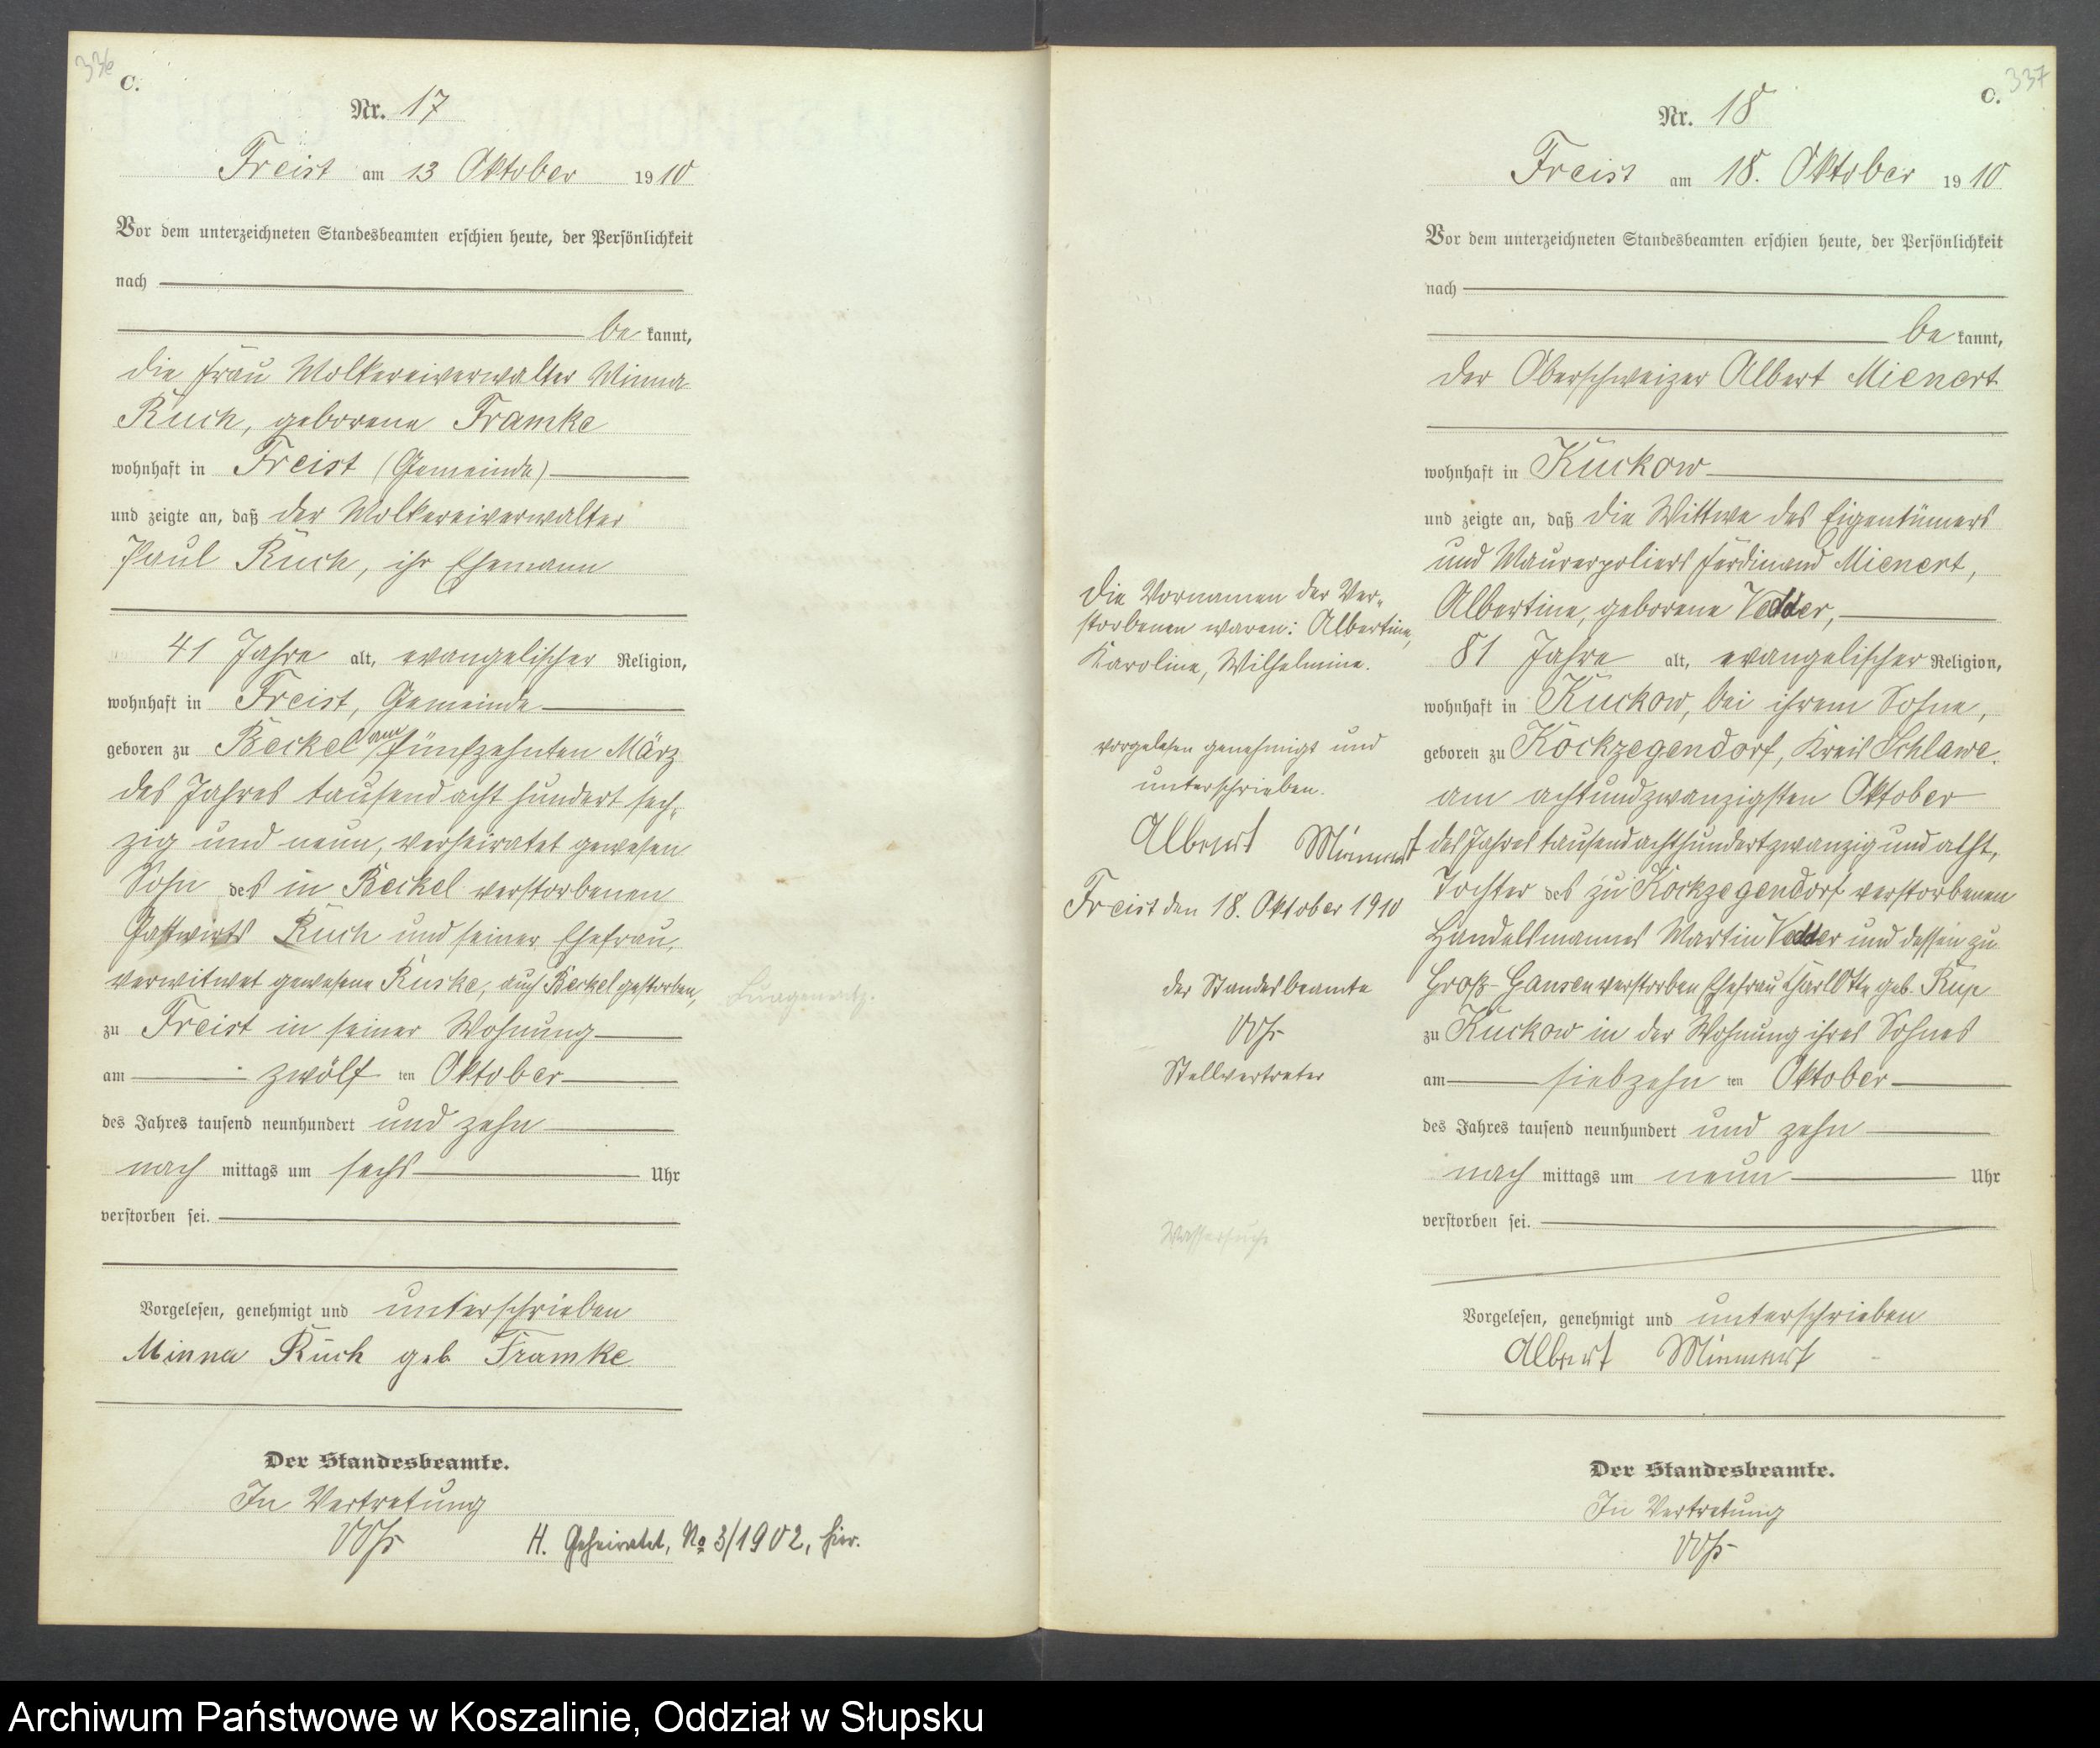 336
C.
Nr. 17
Freist am 13 Oktober 1910
Vor dem unterzeichneten Standesbeamten erschien heute, der Persönlichkeit
nach
be kannt,
die Frau Molkereiverwalter Minna
Ruch, geborene Framke
wohnhaft in Freist (Gemeinde)
und zeigte an, daß der Molkereiverwalter
Paul Ruch, ihr Ehemann
41 Jahre alt, evangelischer Religion,
wohnhaft in Freist, Gemeinde
geboren zu Beckel am fünfzehnten März
des Jahres tausend acht hundert sech-
zig und neun, verheiratet gewesen
Sohn des in Beckel verstorbenen
Gastwirts Ruch und seiner Ehefrau,
verwitwet gewesene Kuske, auch Beckel gestorben,
zu Freist in seiner Wohnung
am zwölf ten Oktober
des Jahres tausend neunhundert und zehn
nach mittags um sechs Uhr
verstorben sei.
Vorgelesen, genehmigt und unterschrieben
Minna Ruch geb Framke
Der Standesbeamte.
In Vertretung
H. Geheiratet, No 3/1902, hier.
337
C.
Nr. 18
Freist am 18. Oktober 1910
Vor dem unterzeichneten Standesbeamten erschien heute, der Persönlichkeit
nach
be kannt,
der Oberschweizer Albert Mienert
wohnhaft in Kuckow
und zeigte an, daß die Wittwe des Eigentümers
und Maurerpoliers Ferdinand Mienert,
Albertine, geborene Vedder,
81 Jahre alt, evangelischer Religion,
wohnhaft in Kuckow, bei ihrem Sohne,
geboren zu Köckzegendorf, Kreis Schlawe.
am achtundzwanzigsten Oktober
des Jahres tausendachthundertzwanzig und acht,
Tochter des zu Kockzegendorf verstorbenen
Handelsmannes Martin Vedder und dessen zu
Groß-Gansen verstorben Ehefrau Charlotte geb.
zu Kuckow in der Wohnung ihres Sohnes
am siebzehn ten Oktober
des Jahres tausend neunhundert und zehn
nach mittags um neun Uhr
verstorben sei.
Vorgelesen, genehmigt und unterschrieben
Albert Mienert
Der Standesbeamte.
In Vertretung
Die Vornamen der Ver-
storbenen waren: Albertine,
Karoline, Wilhelmine.
vorgelesen genehmigt und
unterschrieben.
Albert Mienert
Freist den 18. Oktober 1910
der Standesbeamte
Stellvertreter
Wassersucht
Archiwum Państwowe w Koszalinie, Oddział w Słupsku